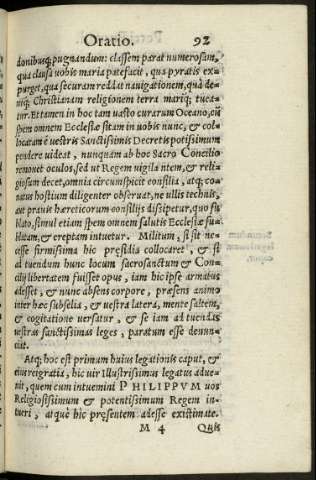 Oratio. 92
donibusq; pugnandum: classem parat numerosam,
qua clausa uobis maria patefacit, qua pyratis ex-
purget, qua securam reddat nauigationem, quà de-
niq; Christianam religionem terra mariq; tuea-
tur. Et tamen in hoc tam uasto curarum Oceano, cũ
spem omnem Ecclesiæ sitam in uobis nunc, & col-
locatam è uestris Sanctissimis Decretis potissimum
pendere uideat, nunquam ab hoc Sacro Concilio
remouet oculos, sed ut Regem uigilantem, & reli-
giosum decet, omnia circumspicit consilia, atq; co-
natus hostium diligenter obseruat, ne ullis technis,
aut prauis hæreticorum consilijs dissipetur, quo su-
blato, simul etiam spem omnem salutis Ecclesiæ su-
blatam, & ereptam intuetur. Militum, si sit ne-
cesse firmissima hic præsidia collocaret, & si
ad tuendum hunc locum sacrosanctum & Con-
cilij libertatem fuisset opus, iam hic ipse armatus
adesset, & nunc absens corpore, præsens animo
inter hæc subselia, & uestra latera, mente saltem,
& cogitatione uersatur, & se iam ad tuendas
uestras sanctissimas leges, paratum esse denun-
ciat.
Atq; hoc est primum huius legationis caput, &
eius rei gratia, hic uir Illustrissimus legatus adue-
nit, quem cum intuemini PHILIPPVM uos
Religiosissimum & potentissimum Regem in-
tueri, atque hic præsentem adesse existimate.
M 4 Quis